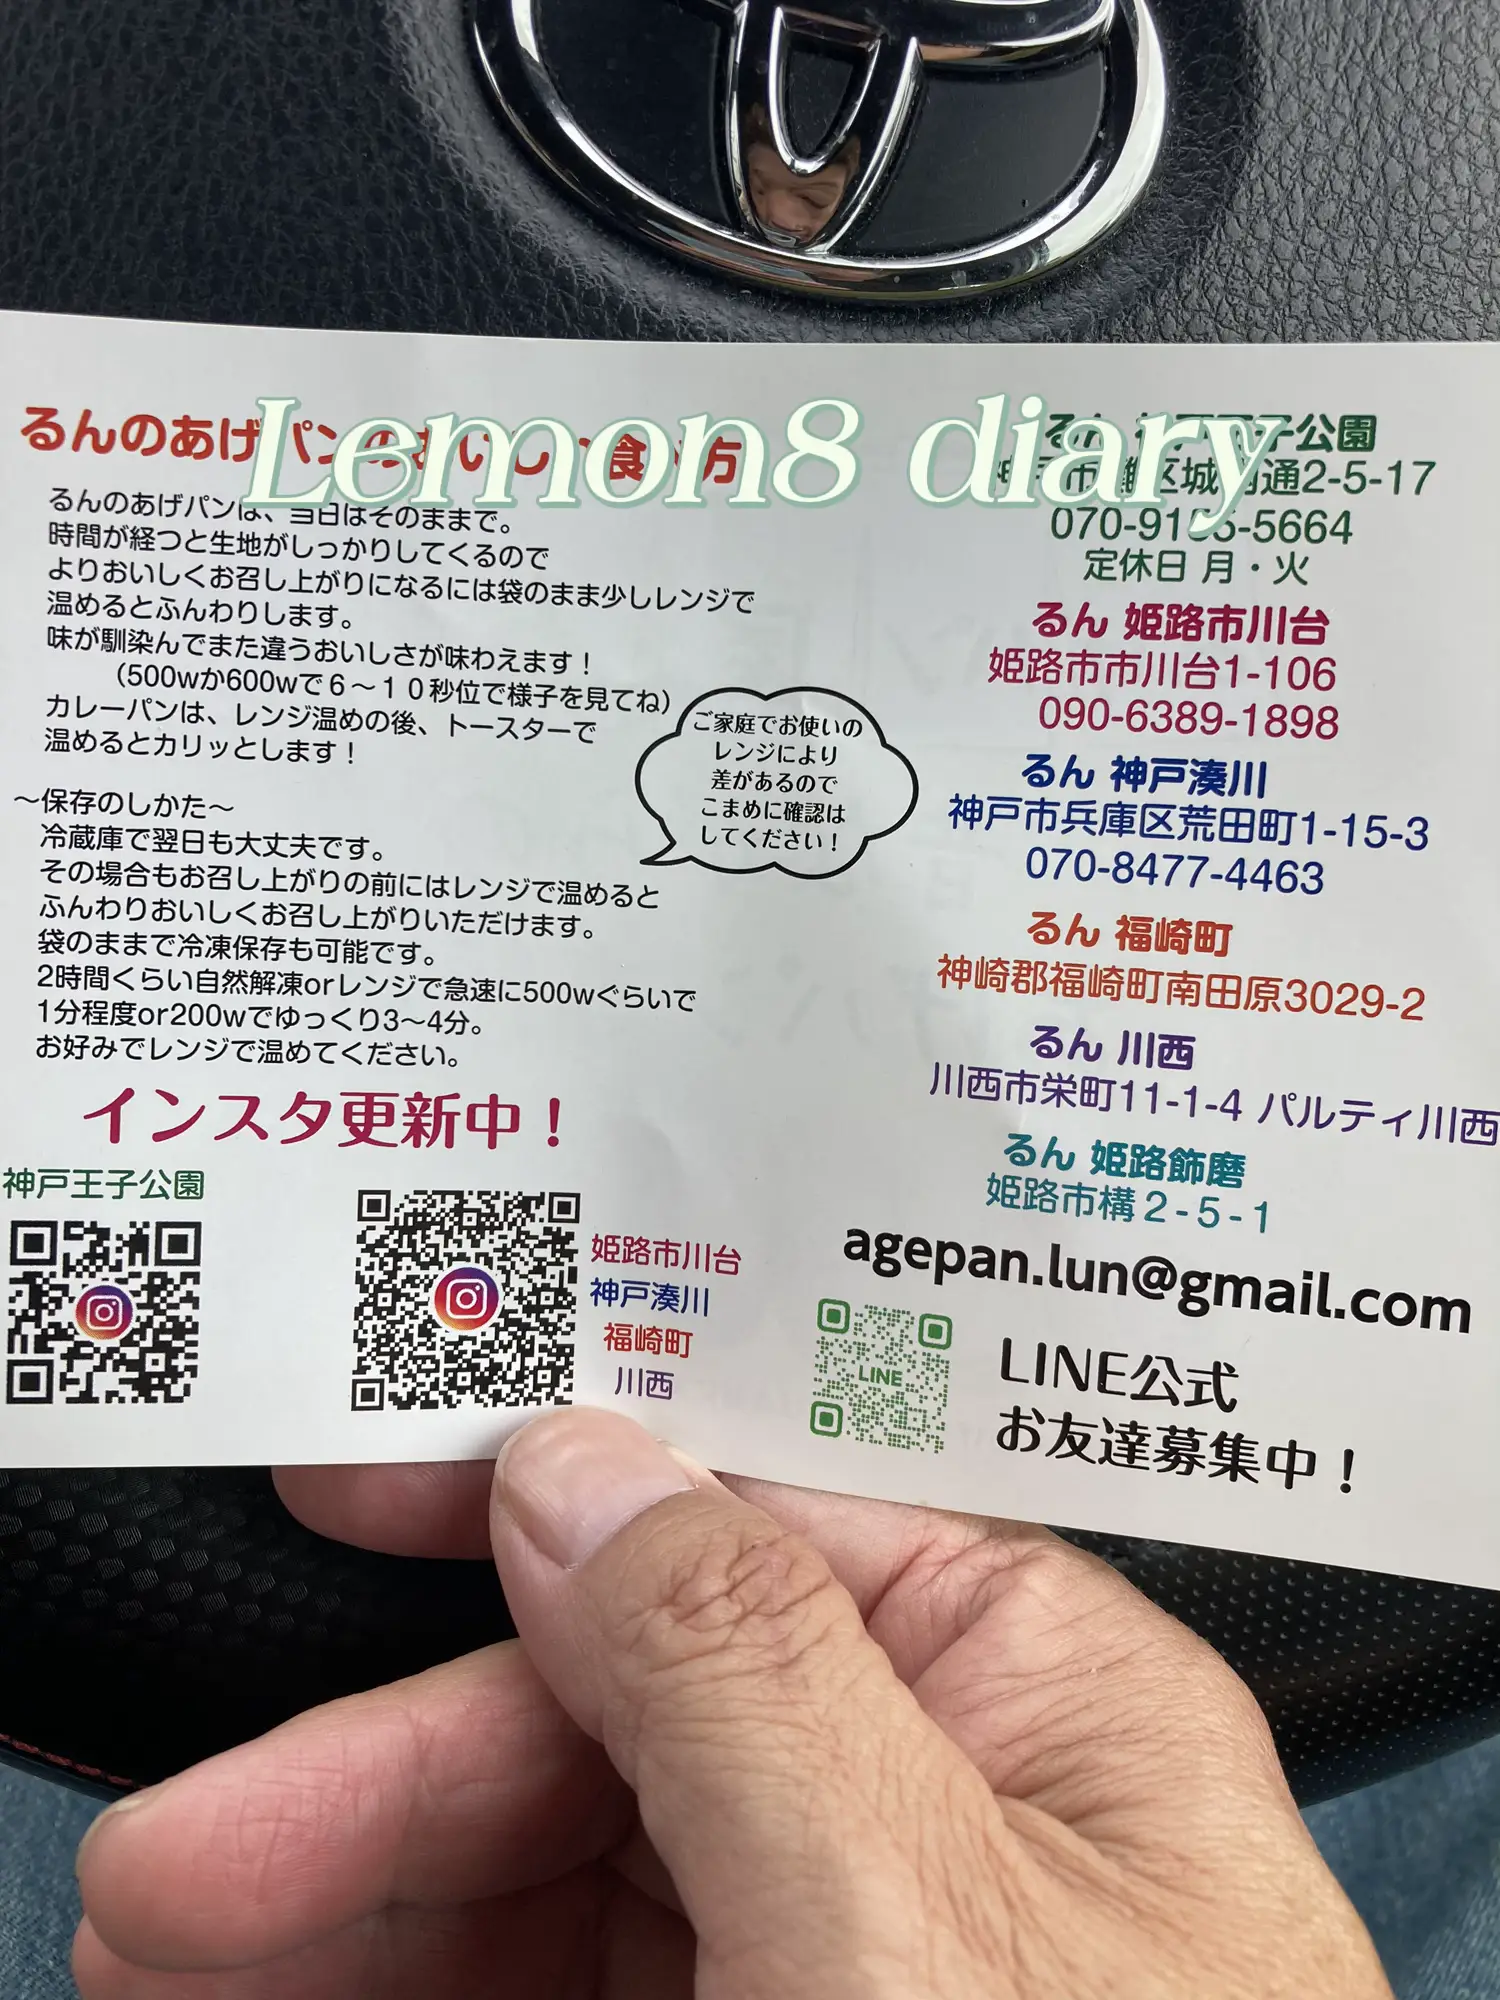 Lemon8 diary
るんのあげパンのおいしい食べ方
るんのあげパンは、当日はそのままで。
時間が経つと生地がしっかりしてくるので
よりおいしくお召し上がりになるには袋のまま少しレンジで
温めるとふんわりします。
味が馴染んでまた違うおいしさが味わえます！
（500wか600wで６～１０秒位で様子を見てね）
カレーパンは、レンジ温めの後、トースターで
温めるとカリッとします！
ご家庭でお使いの
レンジにより
差があるので
こまめに確認は
してください！
～保存のしかた～
冷蔵庫で翌日も大丈夫です。
その場合もお召し上がりの前にはレンジで温めると
ふんわりおいしくお召し上がりいただけます。
袋のままで冷凍保存も可能です。
2時間くらい自然解凍orレンジで急速に500wぐらいで
1分程度or200wでゆっくり3～4分。
お好みでレンジで温めてください。
インスタ更新中！
神戸王子公園
姫路市川台
神戸湊川
福崎町
川西
るん 神戸王子公園
神戸市灘区城内通2-5-17
5664
定休日 月・火
るん 姫路市川台
姫路市市川台1-106
090-6389-1898
るん 神戸湊川
神戸市兵庫区荒田町1-15-3
070-8477-4463
るん 福崎町
神崎郡福崎町南田原3029-2
るん 川西
川西市栄町11-1-4 パルティ川西
るん 姫路飾磨
姫路市構２-５-１
agepan.lun@gmail.com
LINE
LINE公式
お友達募集中！